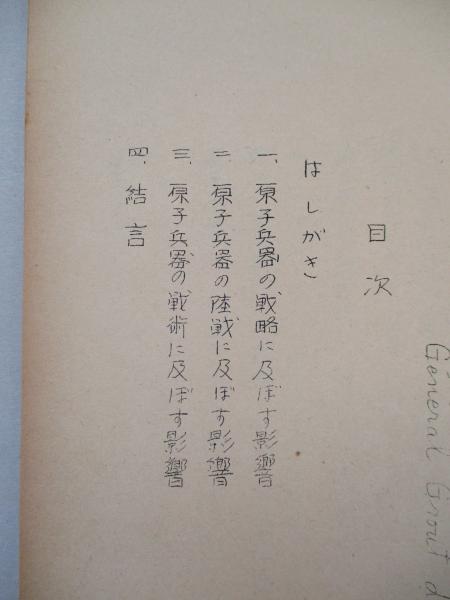 目次
はしがき
一、原子兵器の戦略に及ぼす影響
二、原子兵器の陸戦に及ぼす影響
三、原子兵器の戦術に及ぼす影響
四、結言
General